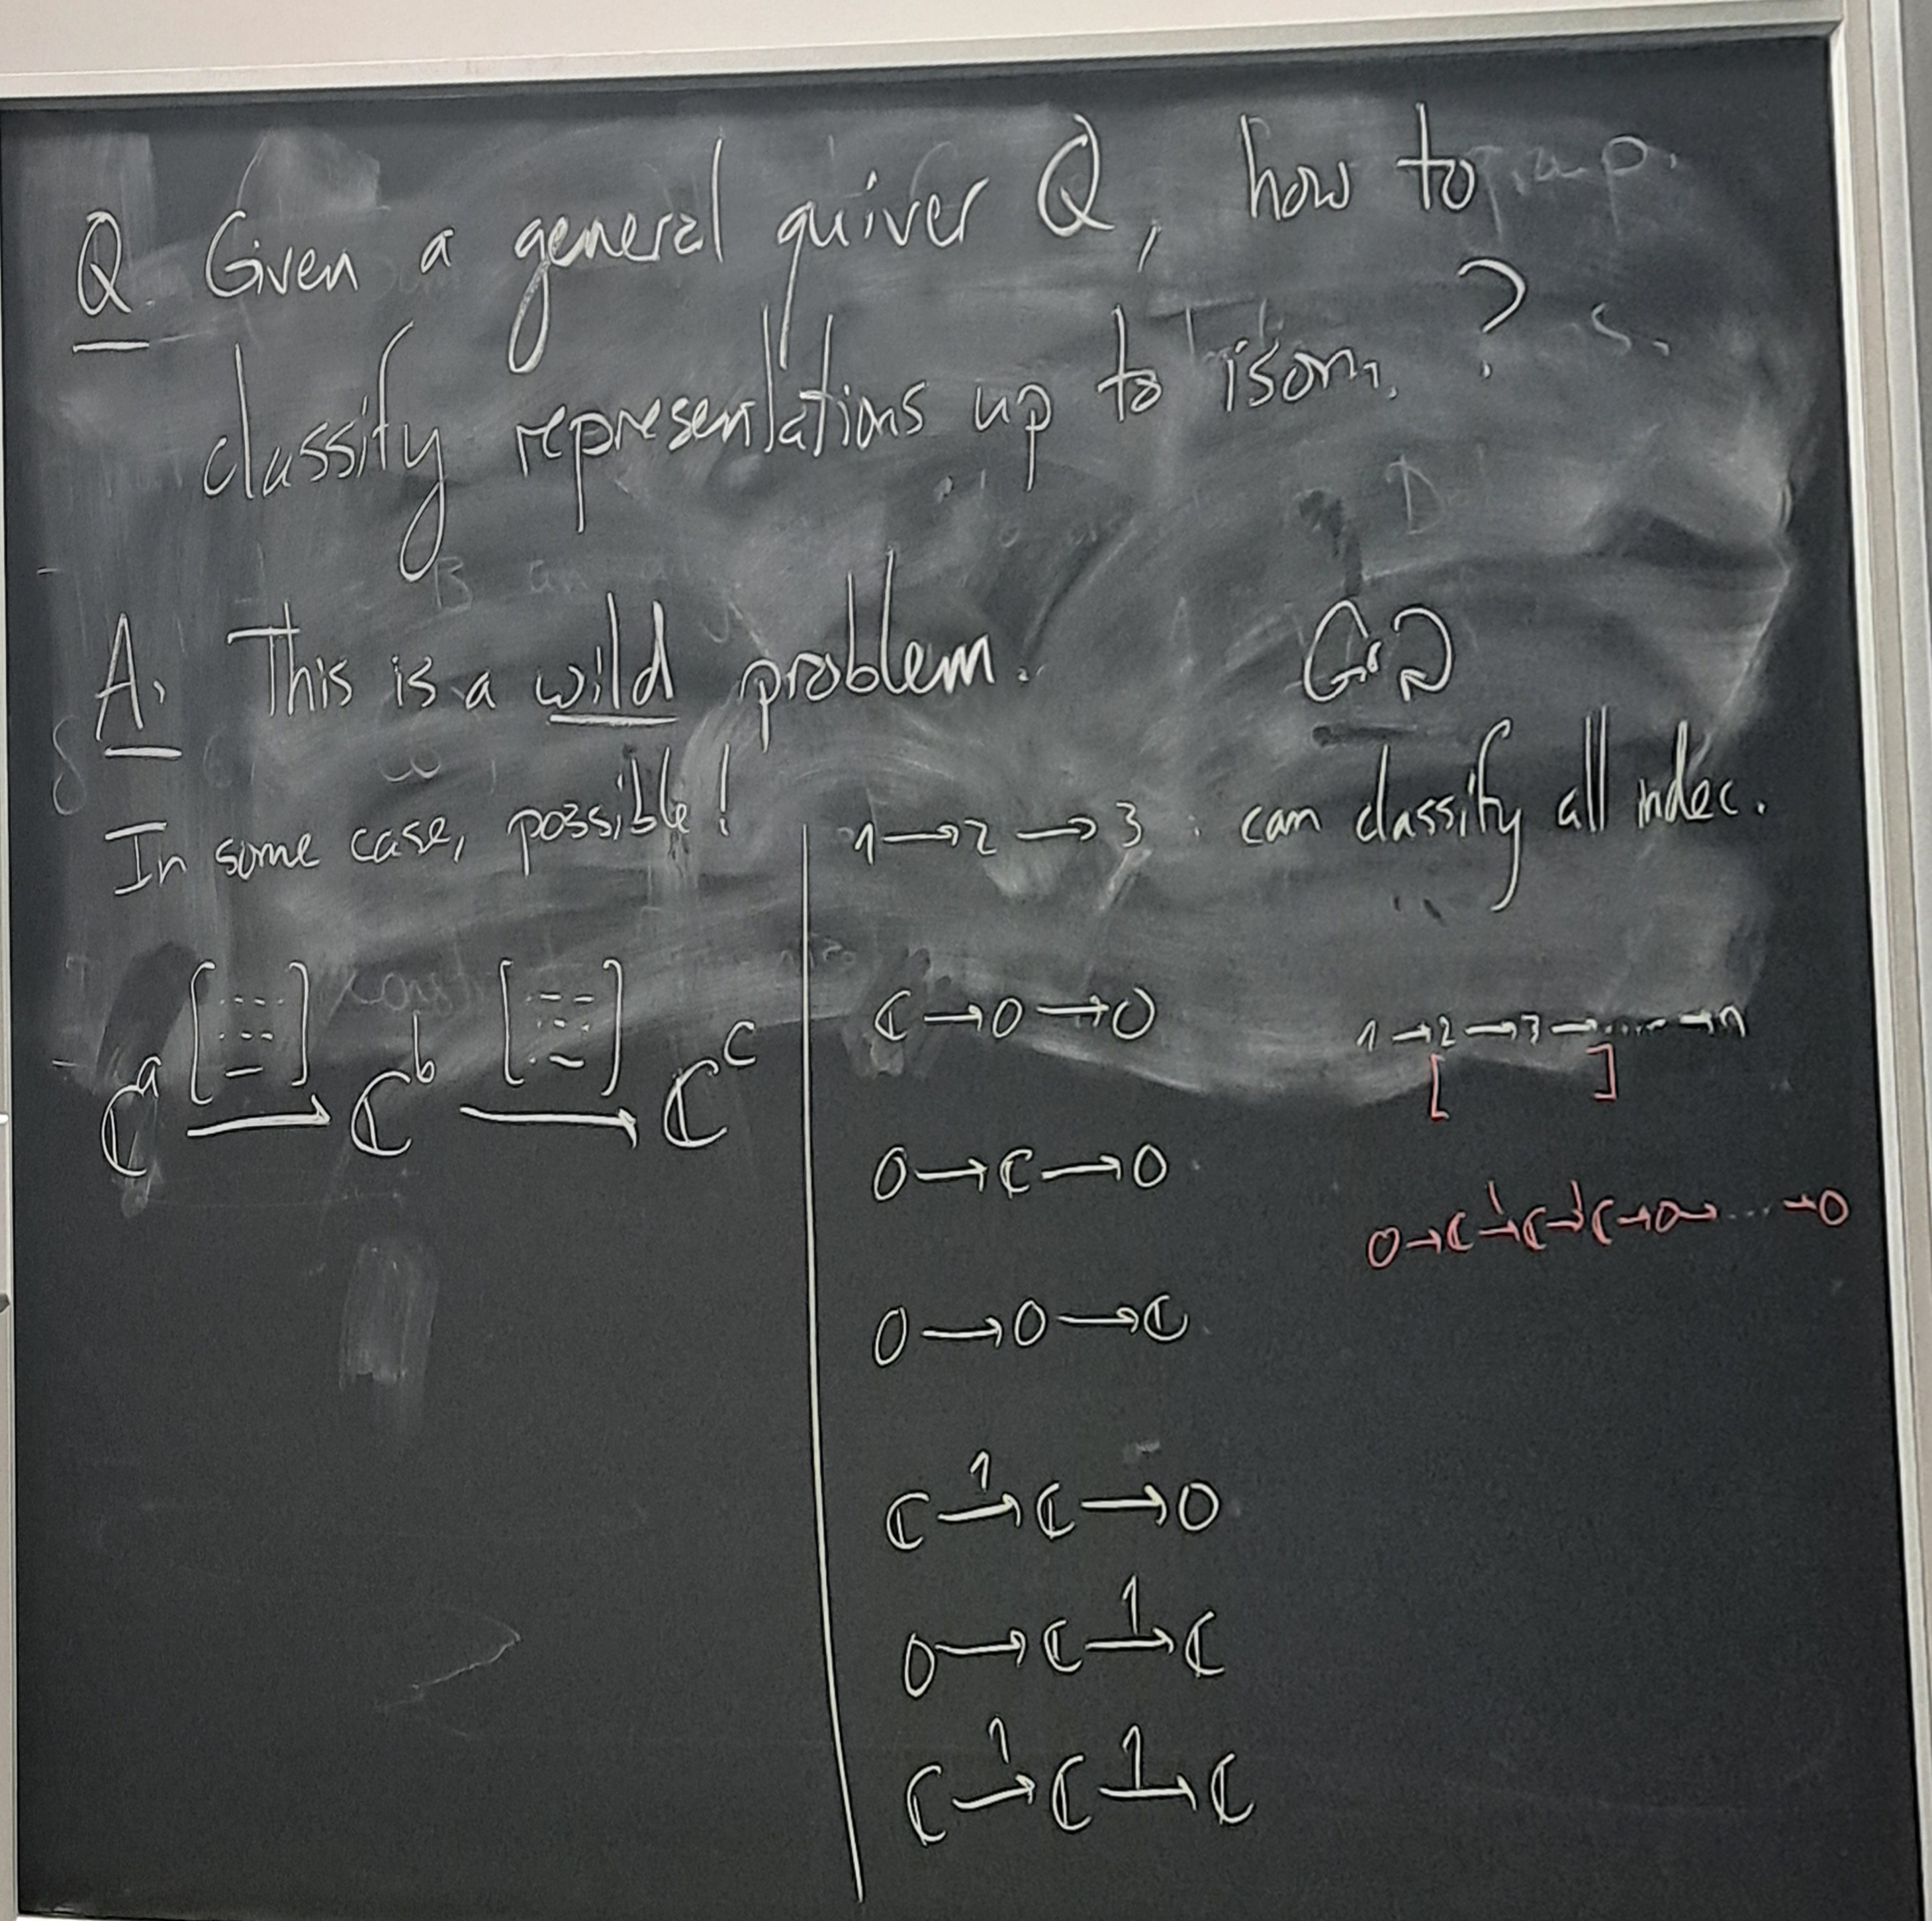 Q. Given a general quiver Q, how to
classify representations up to isom. ?
A. This is a wild problem.
In some case, possible!
1 → 2 → 3 : can classify all indec.
ℂᵃ → ℂᵇ → ℂᶜ
ℂ → 0 → 0
0 → ℂ → 0
0 → 0 → ℂ
ℂ →¹ ℂ → 0
0 → ℂ →¹ ℂ
ℂ →¹ ℂ →¹ ℂ
1 → 2 → 3 → ..... → n
[ ]
0 → ℂ →¹ ℂ →¹ ℂ → 0 → ... → 0